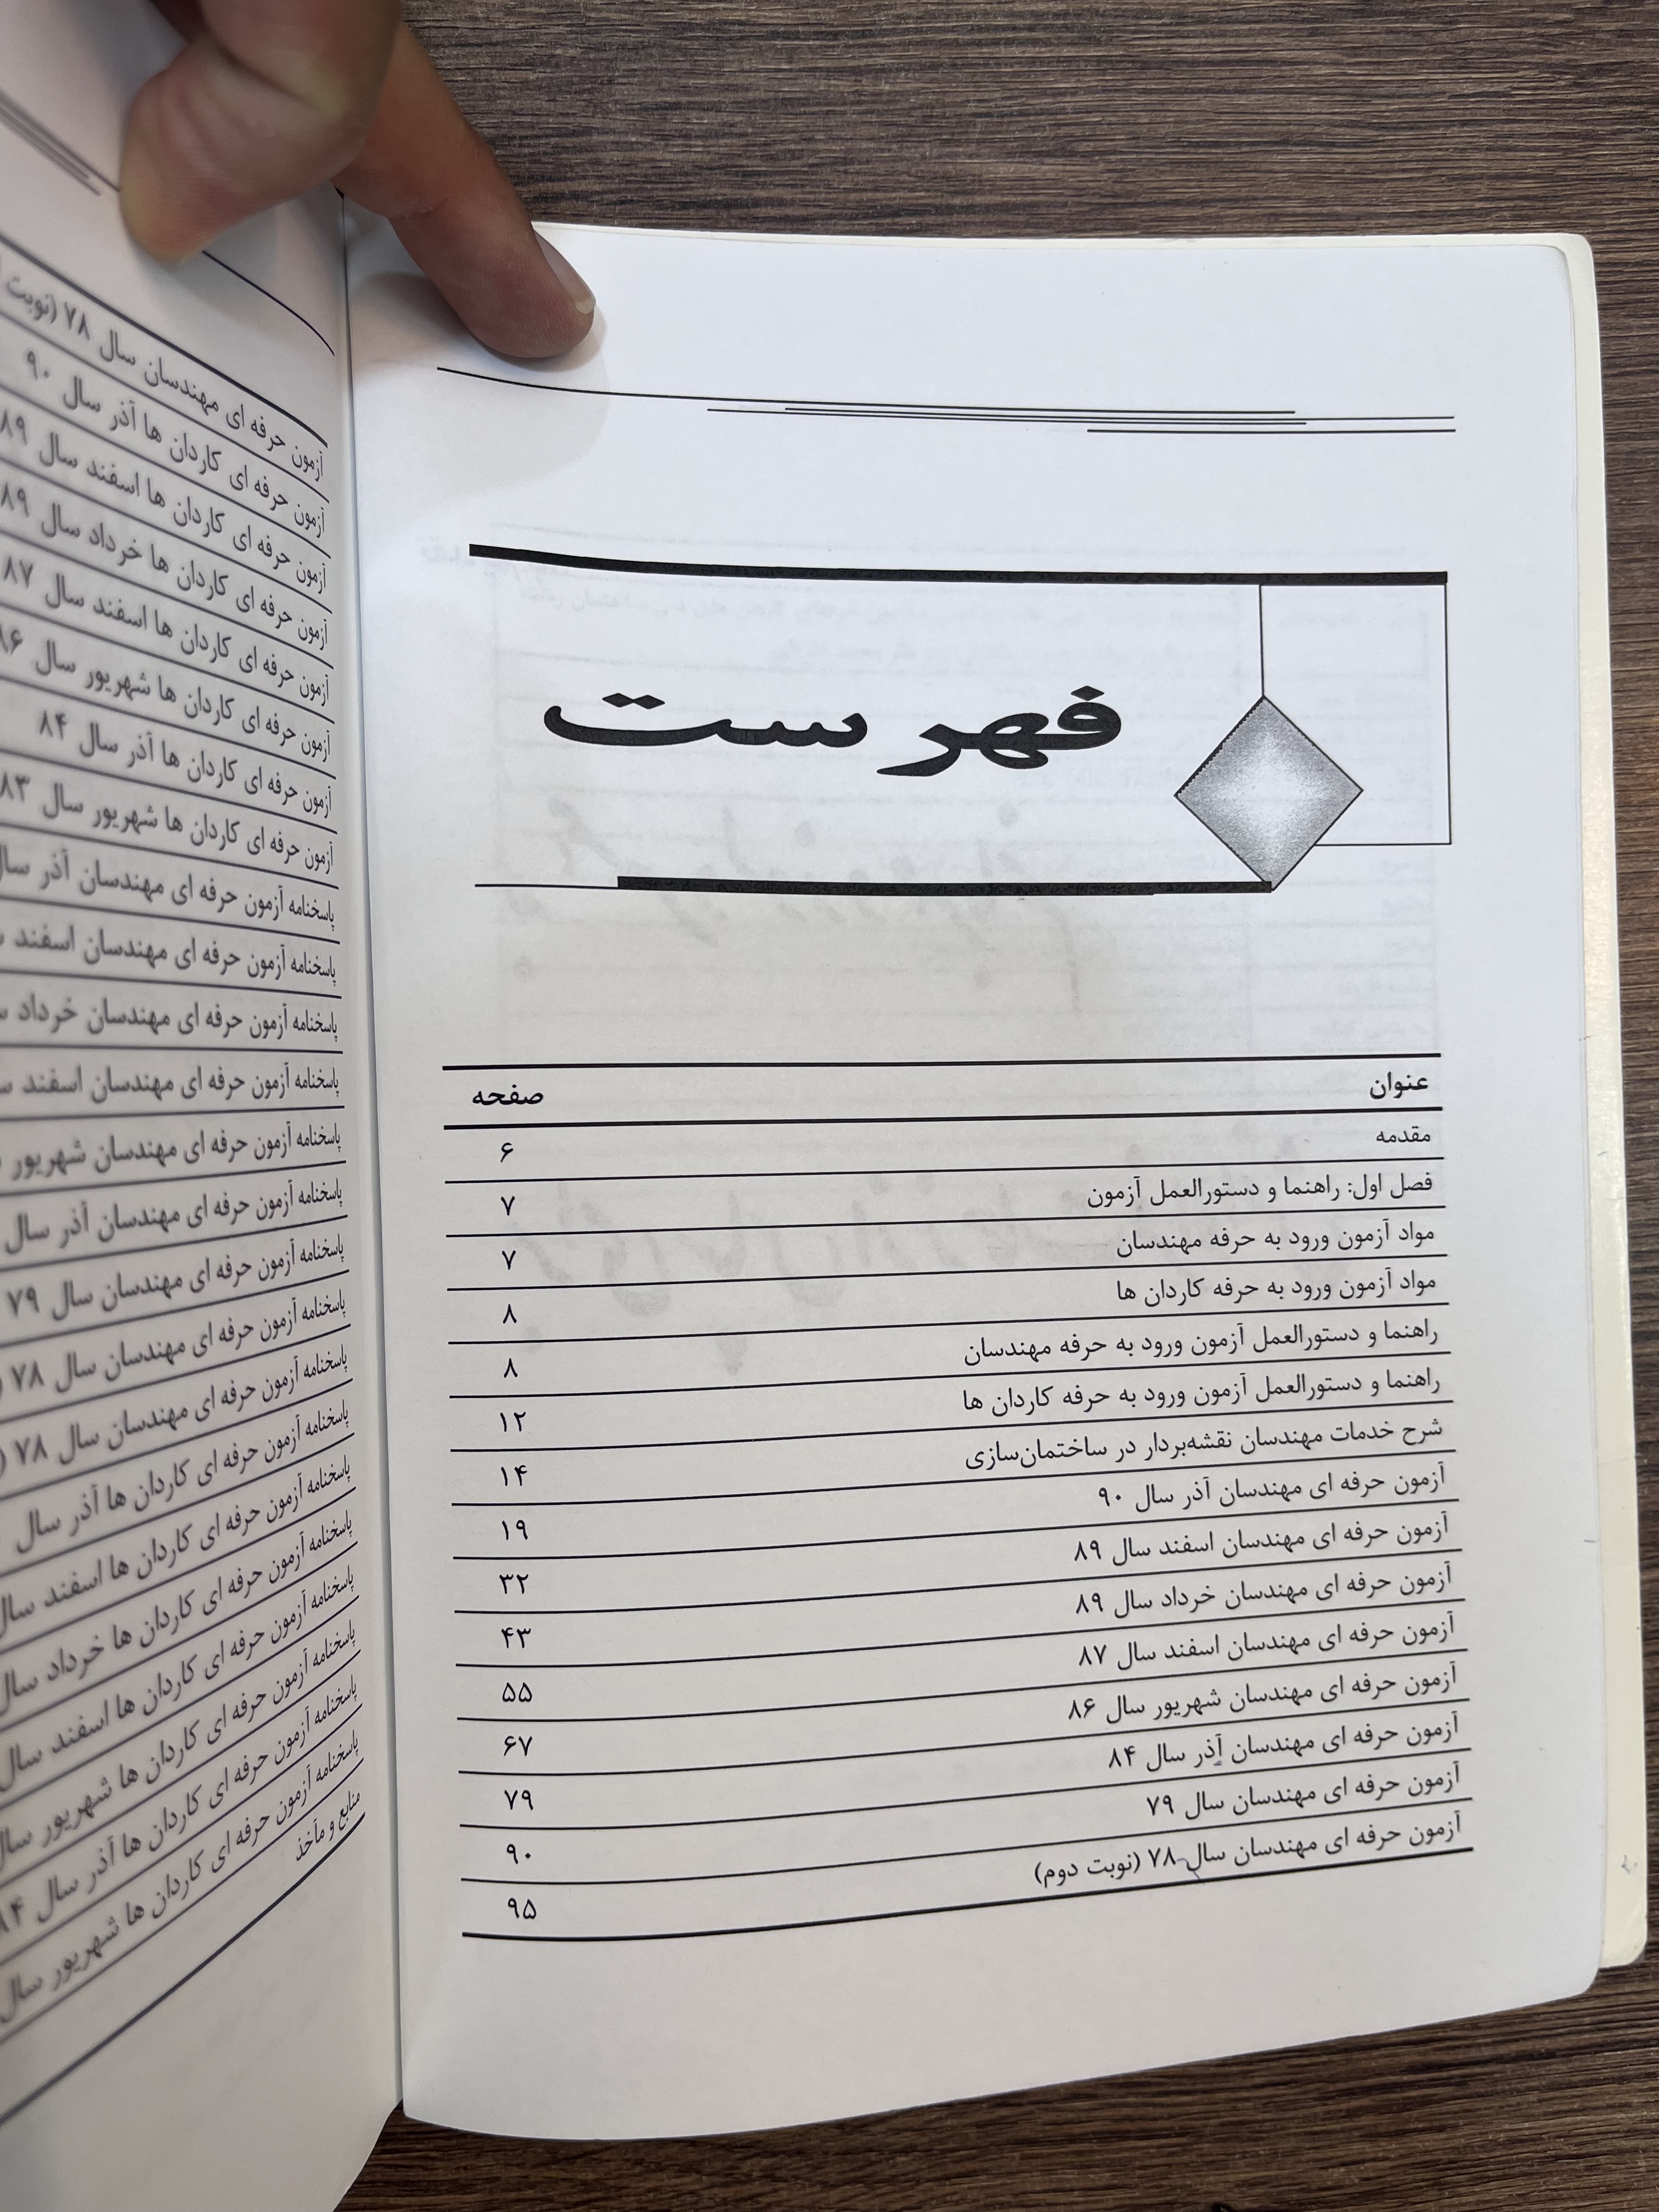 فهرست
عنوان صفحه
مقدمه ۶
فصل اول: راهنما و دستورالعمل آزمون ۷
مواد آزمون ورود به حرفه مهندسان ۷
مواد آزمون ورود به حرفه کاردان ها ۸
راهنما و دستورالعمل آزمون ورود به حرفه مهندسان ۸
راهنما و دستورالعمل آزمون ورود به حرفه کاردان ها ۱۲
شرح خدمات مهندسان نقشه‌بردار در ساختمان‌سازی ۱۴
آزمون حرفه ای مهندسان آذر سال ۹۰ ۱۹
آزمون حرفه ای مهندسان اسفند سال ۸۹ ۳۲
آزمون حرفه ای مهندسان خرداد سال ۸۹ ۴۳
آزمون حرفه ای مهندسان اسفند سال ۸۷ ۵۵
آزمون حرفه ای مهندسان شهریور سال ۸۶ ۶۷
آزمون حرفه ای مهندسان آذر سال ۸۴ ۷۹
آزمون حرفه ای مهندسان سال ۷۹ ۹۰
آزمون حرفه ای مهندسان سال ۷۸ (نوبت دوم) ۹۵
آزمون حرفه ای مهندسان سال ۷۸ (نوبت
آزمون حرفه ای کاردان ها آذر سال ۹۰
آزمون حرفه ای کاردان ها اسفند سال ۸۹
آزمون حرفه ای کاردان ها خرداد سال ۸۹
آزمون حرفه ای کاردان ها اسفند سال ۸۷
آزمون حرفه ای کاردان ها شهریور سال ۸۶
آزمون حرفه ای کاردان ها آذر سال ۸۴
آزمون حرفه ای کاردان ها شهریور سال ۸۳
پاسخنامه آزمون حرفه ای مهندسان آذر سال
پاسخنامه آزمون حرفه ای مهندسان اسفند
پاسخنامه آزمون حرفه ای مهندسان خرداد
پاسخنامه آزمون حرفه ای مهندسان اسفند
پاسخنامه آزمون حرفه ای مهندسان شهریور
پاسخنامه آزمون حرفه ای مهندسان آذر سال
پاسخنامه آزمون حرفه ای مهندسان سال ۷۹
پاسخنامه آزمون حرفه ای مهندسان سال ۷۸
پاسخنامه آزمون حرفه ای مهندسان سال ۷۸
پاسخنامه آزمون حرفه ای کاردان ها آذر سال
پاسخنامه آزمون حرفه ای کاردان ها اسفند سال
پاسخنامه آزمون حرفه ای کاردان ها خرداد سال
پاسخنامه آزمون حرفه ای کاردان ها اسفند سال
پاسخنامه آزمون حرفه ای کاردان ها شهریور سال
پاسخنامه آزمون حرفه ای کاردان ها آذر سال ۸۴
پاسخنامه آزمون حرفه ای کاردان ها شهریور سال
منابع و مآخذ